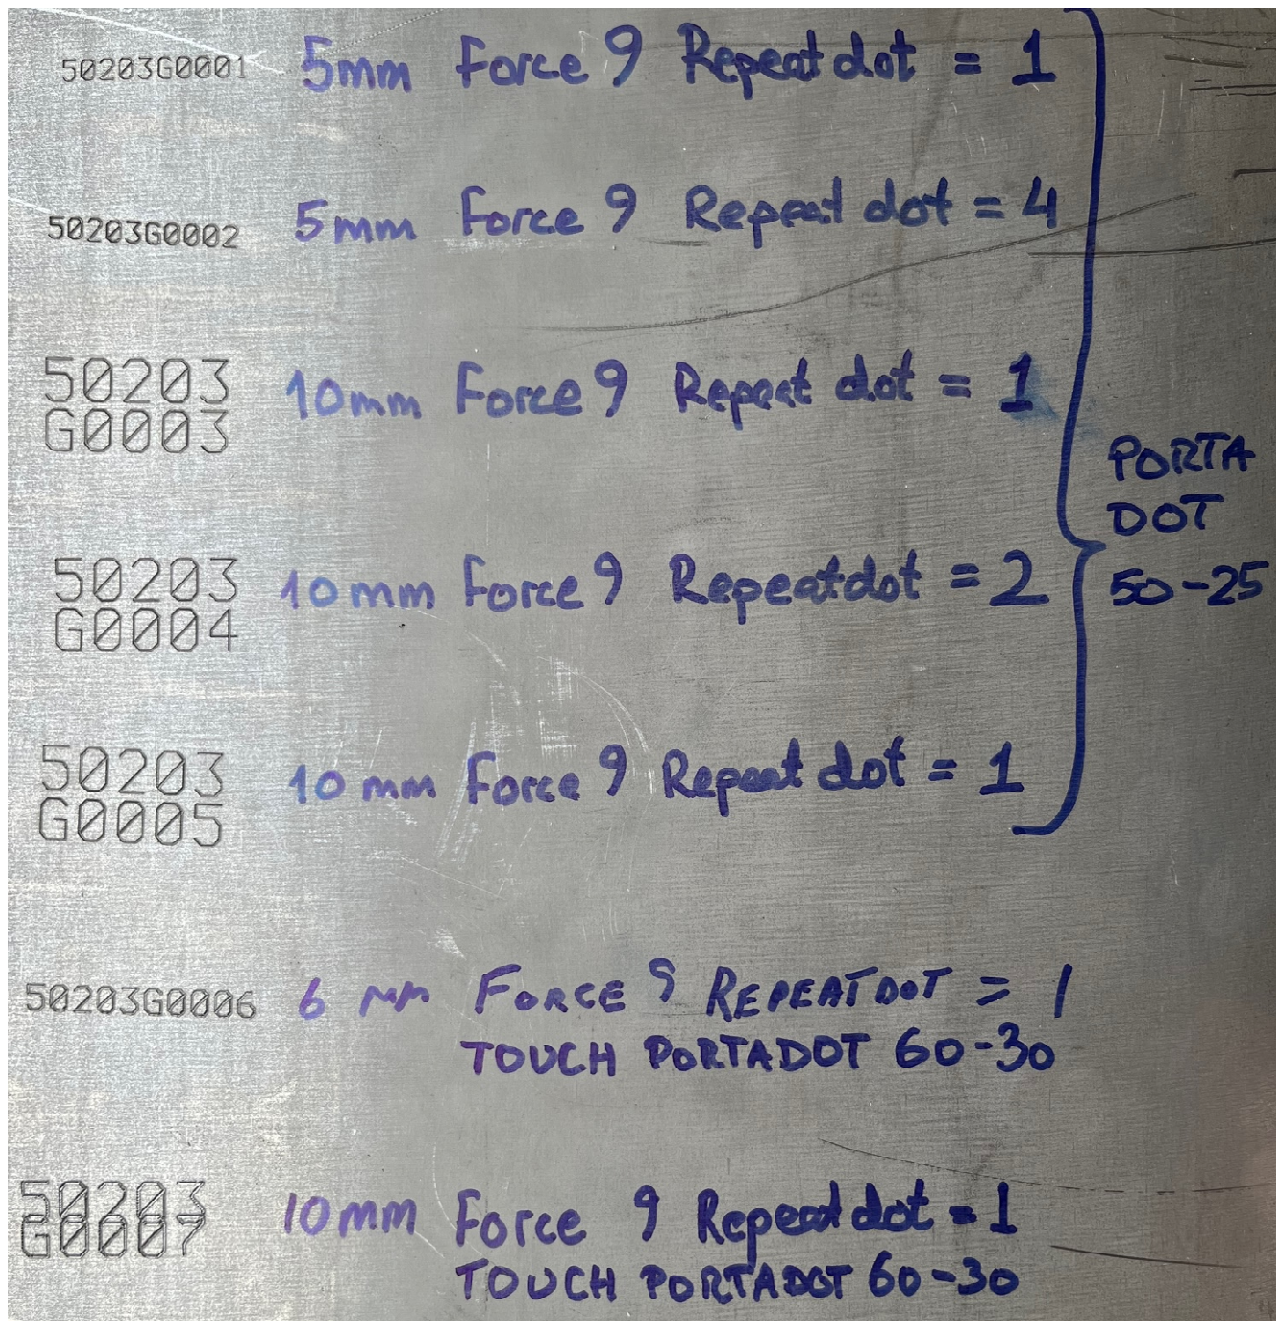 50203G0001 5mm Force 9 Repeat dot = 1
50203G0002 5mm Force 9 Repeat dot = 4
50203
G0003
10mm Force 9 Repeat dot = 1
PORTA
DOT
50-25
50203
G0004
10mm Force 9 Repeat dot = 2
50203
G0005
10mm Force 9 Repeat dot = 1
50203G0006 6 mm FORCE 9 REPEAT DOT = 1
TOUCH PORTADOT 60-30
50203
G0007
10mm Force 9 Repeat dot = 1
TOUCH PORTADOT 60-30